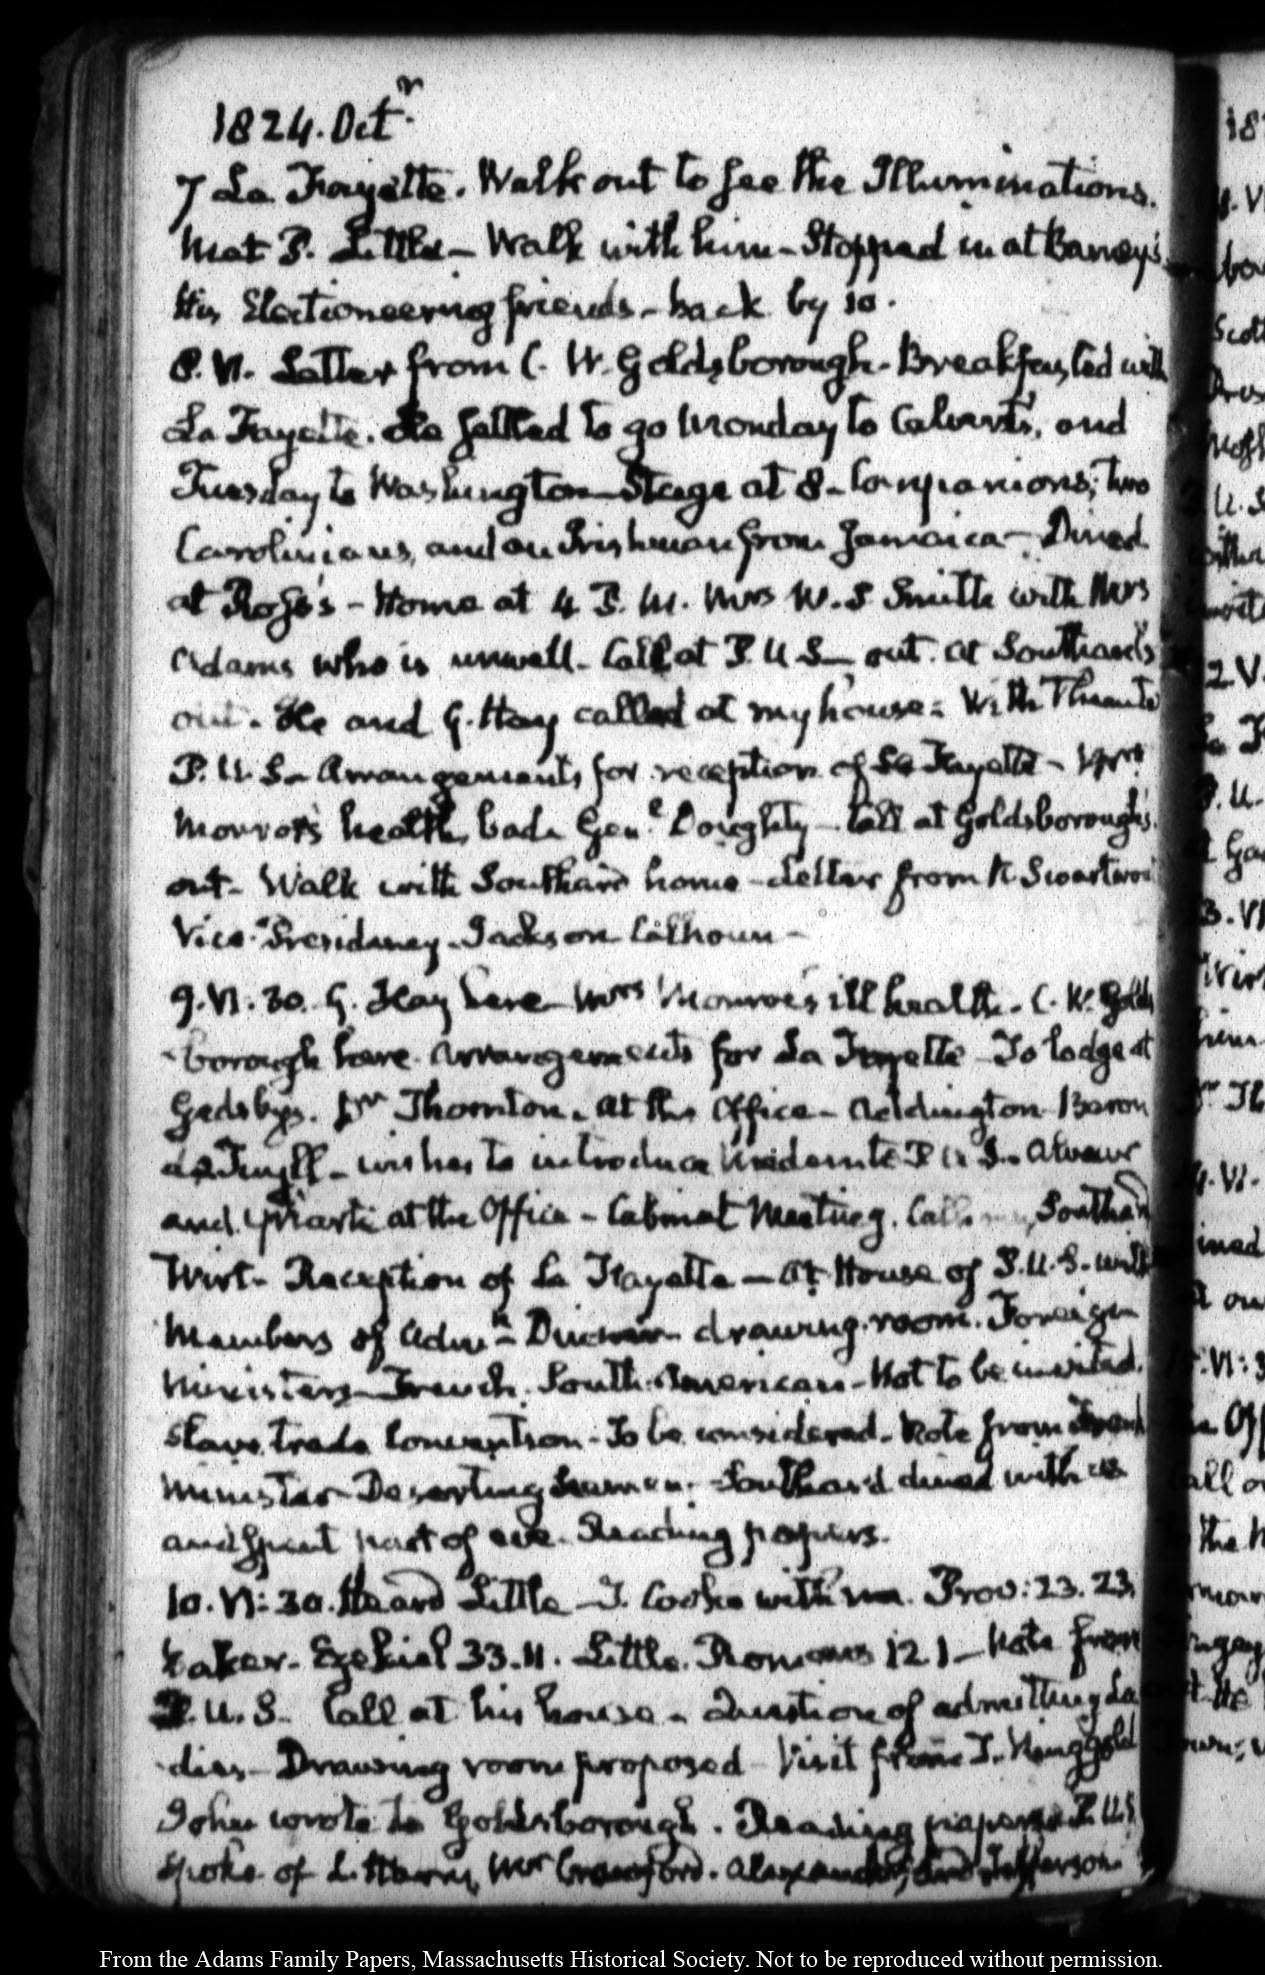 1824. Oct.r
7 La Fayette. Walk out to see the Illuminations.
Met P. Little — Walk with him — Stopped in at Barney's
His Electioneering friends — back by 10.
8. VI. Letter from C. W. Goldsborough. Breakfasted with
La Fayette. He settled to go Monday to Calvert's, and
Tuesday to Washington — Stage at 8 — Companions; two
Carolinians, and an Irishman from Jamaica — Dined
at Ross's — Home at 4 P. M. Mrs W. S. Smith with Mrs
Adams who is unwell. Call at P. U S — out. at Southard's
out. He and G. Hay called at my house: With them to
P. U. S — Arrangements for reception of La Fayette — Mrs
Monroe's health, bad. Genl. Doughty — Call at Goldsborough's.
out — Walk with Southard home — Letter from R Swartwout
Vice-Presidency. Jackson Calhoun —
9. VI. 30. G. Hay here — Mrs Monroe's ill health. C. W. Golds
-borough here. Arrangements for La Fayette — To lodge at
Gadsby's. Dr Thornton. At the Office — Addington Baron
de Tuyll — wishes to introduce to P U S —
and at the Office — Cabinet Meeting. Calhoun, Southard
Wirt — Reception of La Fayette — At House of P. U. S. with
Members of Admn — Dinner — drawing room. Foreign
Ministers — French. South-American — Not to be invited.
Slave trade Convention — To be considered. Note from French
Minister Deserting Seamen. Southard dined with us
and spent part of eve. Reading papers.
10. VI: 30. Heard Little — J. Cooke with me. Prov: 23. 23.
Baker — Ezekiel 33. 11. Little. Romans 12. 1 — Note from
P. U. S — Call at his house — Question of admitting La
-dies — Drawing room proposed — Visit from T. Ringgold
John wrote to Goldsborough. Reading papers. P. U S
spoke of Mr Crawford. and Jefferson
From the Adams Family Papers, Massachusetts Historical Society. Not to be reproduced without permission.